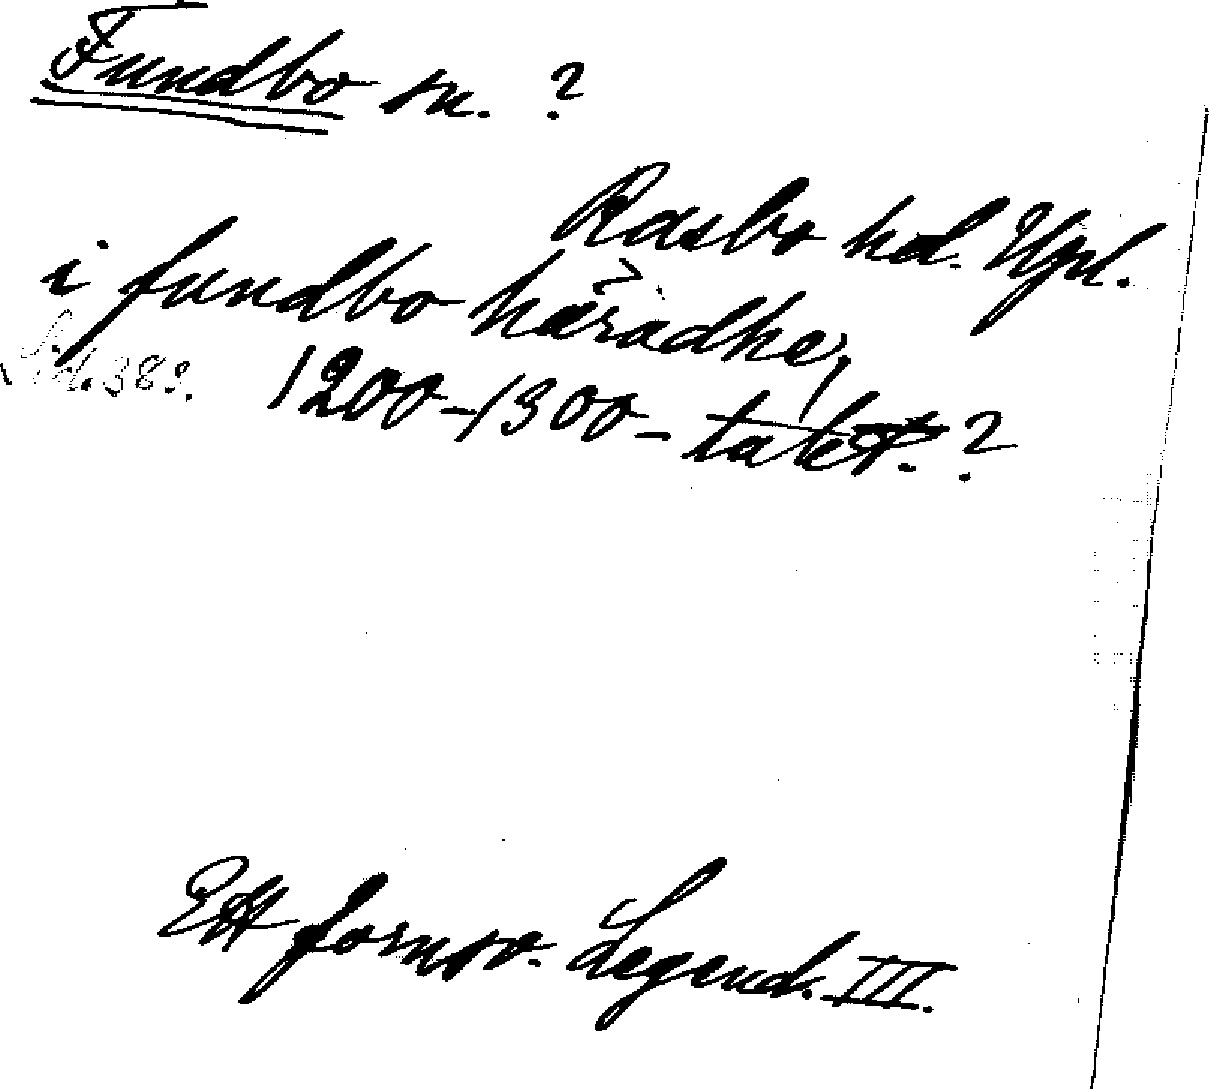 Fundbo sn. ?
Rasbo hd. Upl.
i fundbo häradhe,
1200-1300-talet. ?
Ett fornsv. Legend. III.